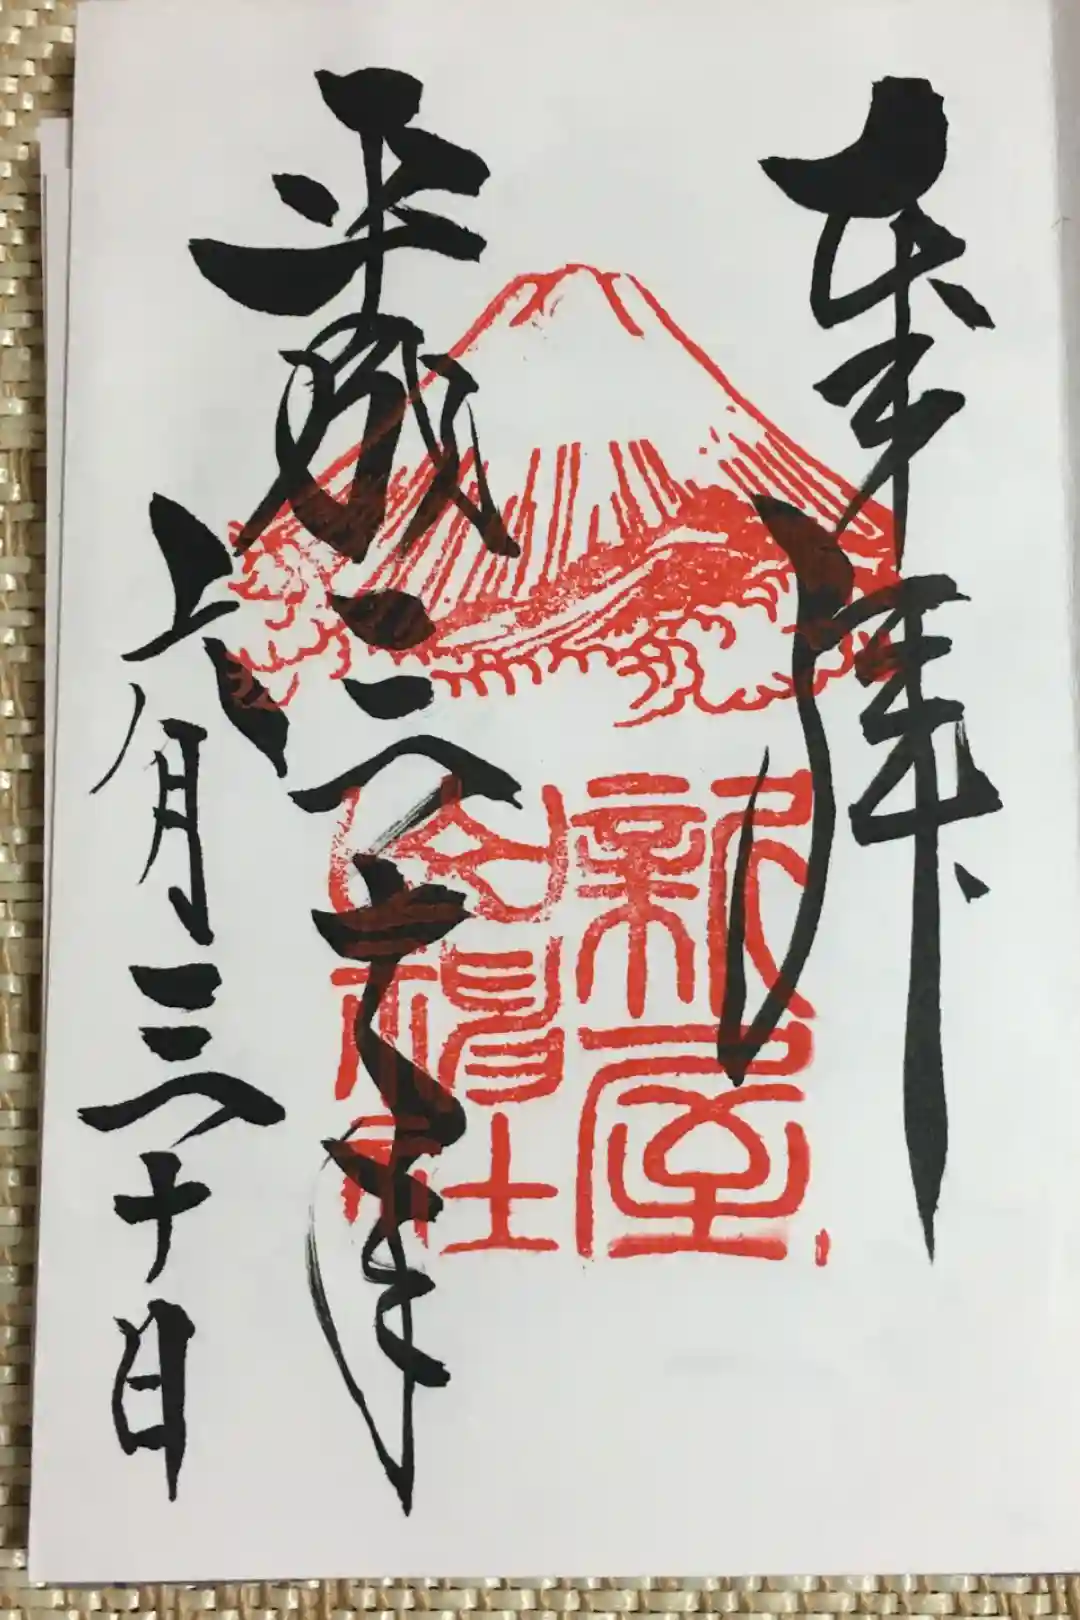 奉拝
新屋
山神社
平成三十年
六月三十日